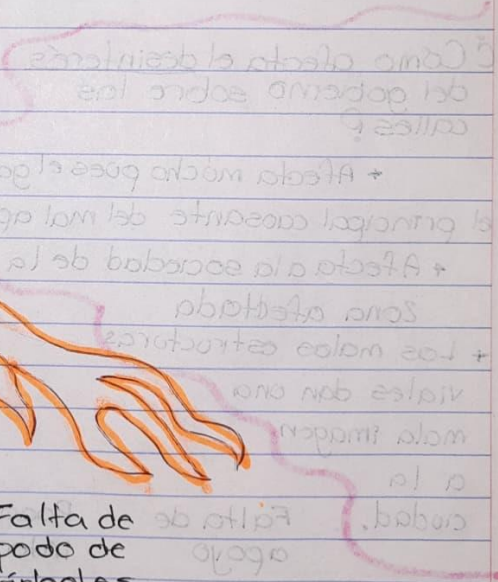 ¿Cómo afecta el desinterés
del gobierno sobre las
calles?
* Afecta mucho pues el go
el principal causante del mal ap
* Afecta a la sociedad de la
zona afectada
* Las malas estructuras
viales dan una
mala imagen
a la
ciudad.
Falta de
apoyo
Falta de
podo de
árboles